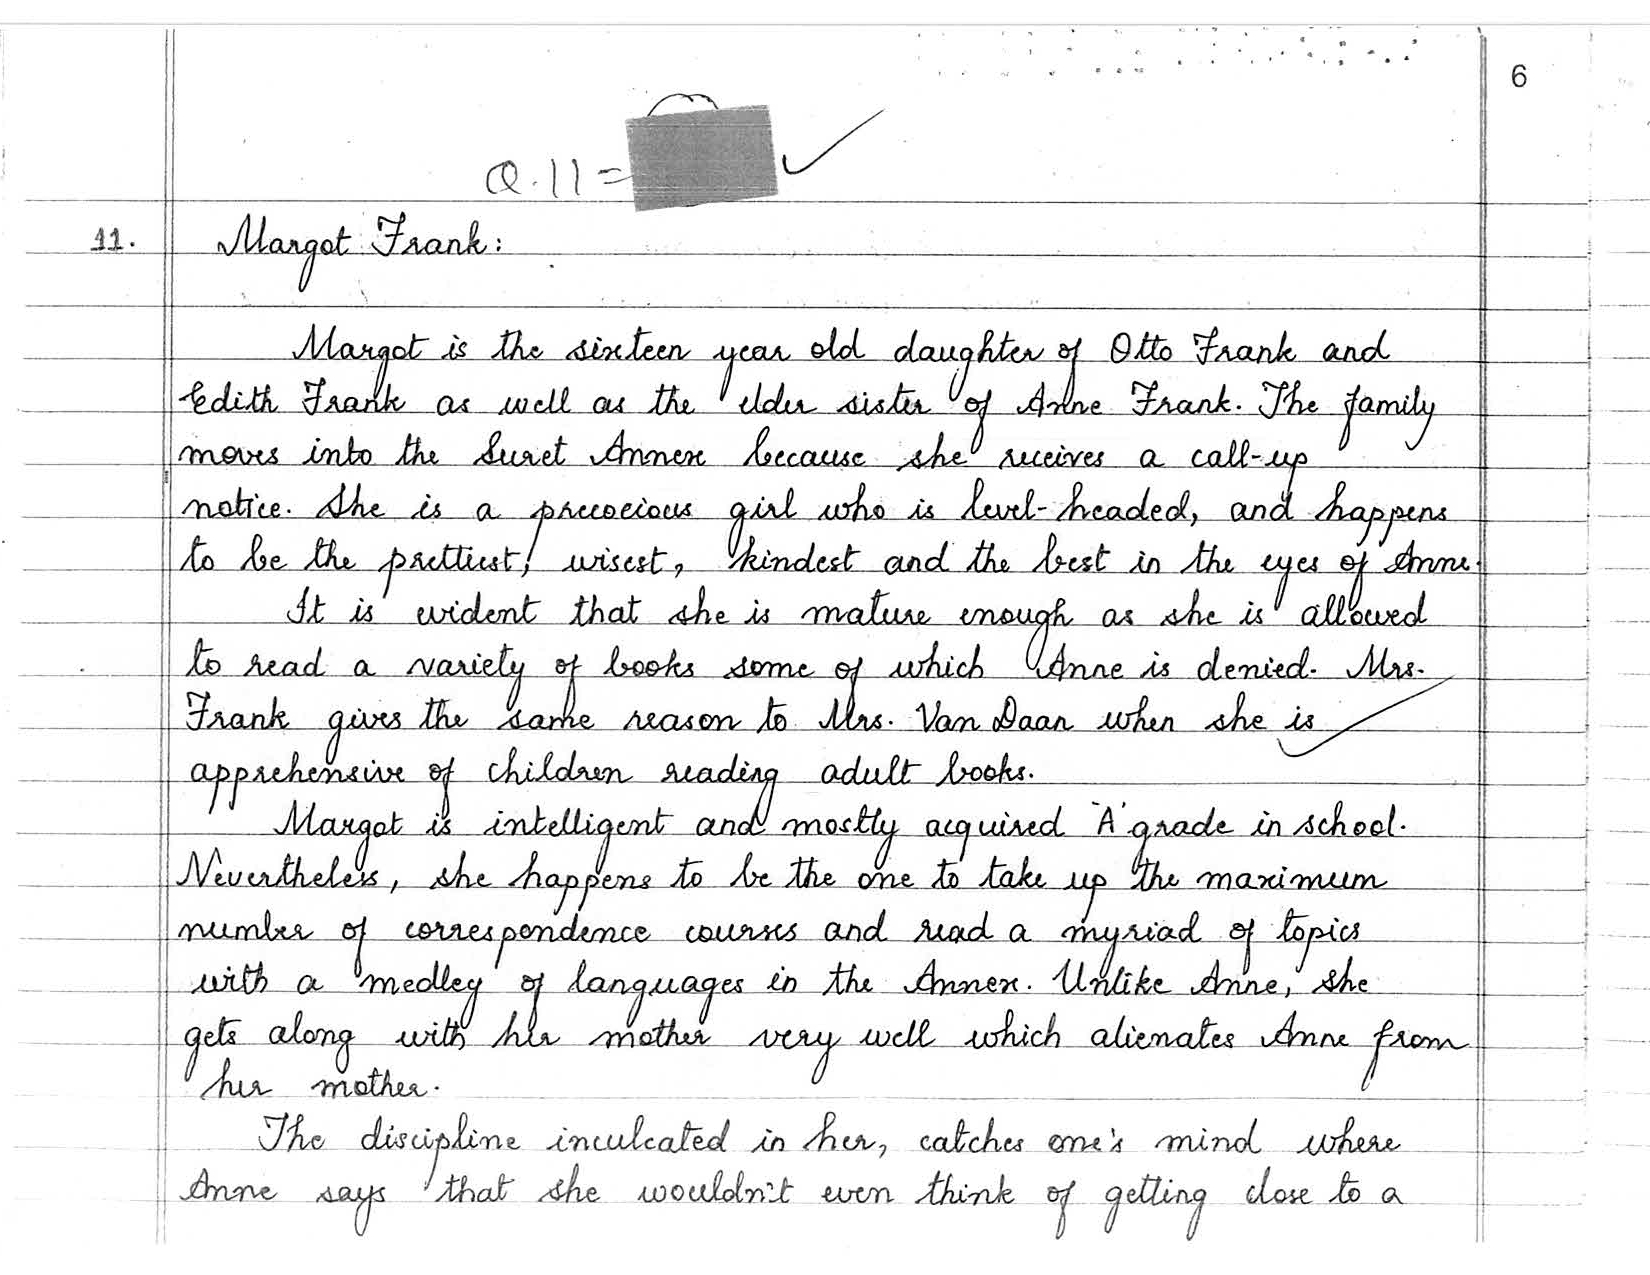 6
Q.11=
11. Margot Frank:
Margot is the sixteen year old daughter of Otto Frank and
Edith Frank as well as the elder sister of Anne Frank. The family
moves into the Secret Annexe because she receives a call-up
notice. She is a precocious girl who is level-headed, and happens
to be the prettiest, wisest, kindest and the best in the eyes of Anne.
It is evident that she is mature enough as she is allowed
to read a variety of books some of which Anne is denied. Mrs.
Frank gives the same reason to Mrs. Van Daan when she is
apprehensive of children reading adult books.
Margot is intelligent and mostly acquired 'A' grade in school.
Nevertheless, she happens to be the one to take up the maximum
number of correspondence courses and read a myriad of topics
with a medley of languages in the Annex. Unlike Anne, she
gets along with her mother very well which alienates Anne from
her mother.
The discipline inculcated in her, catches one's mind where
Anne says that she wouldn't even think of getting close to a